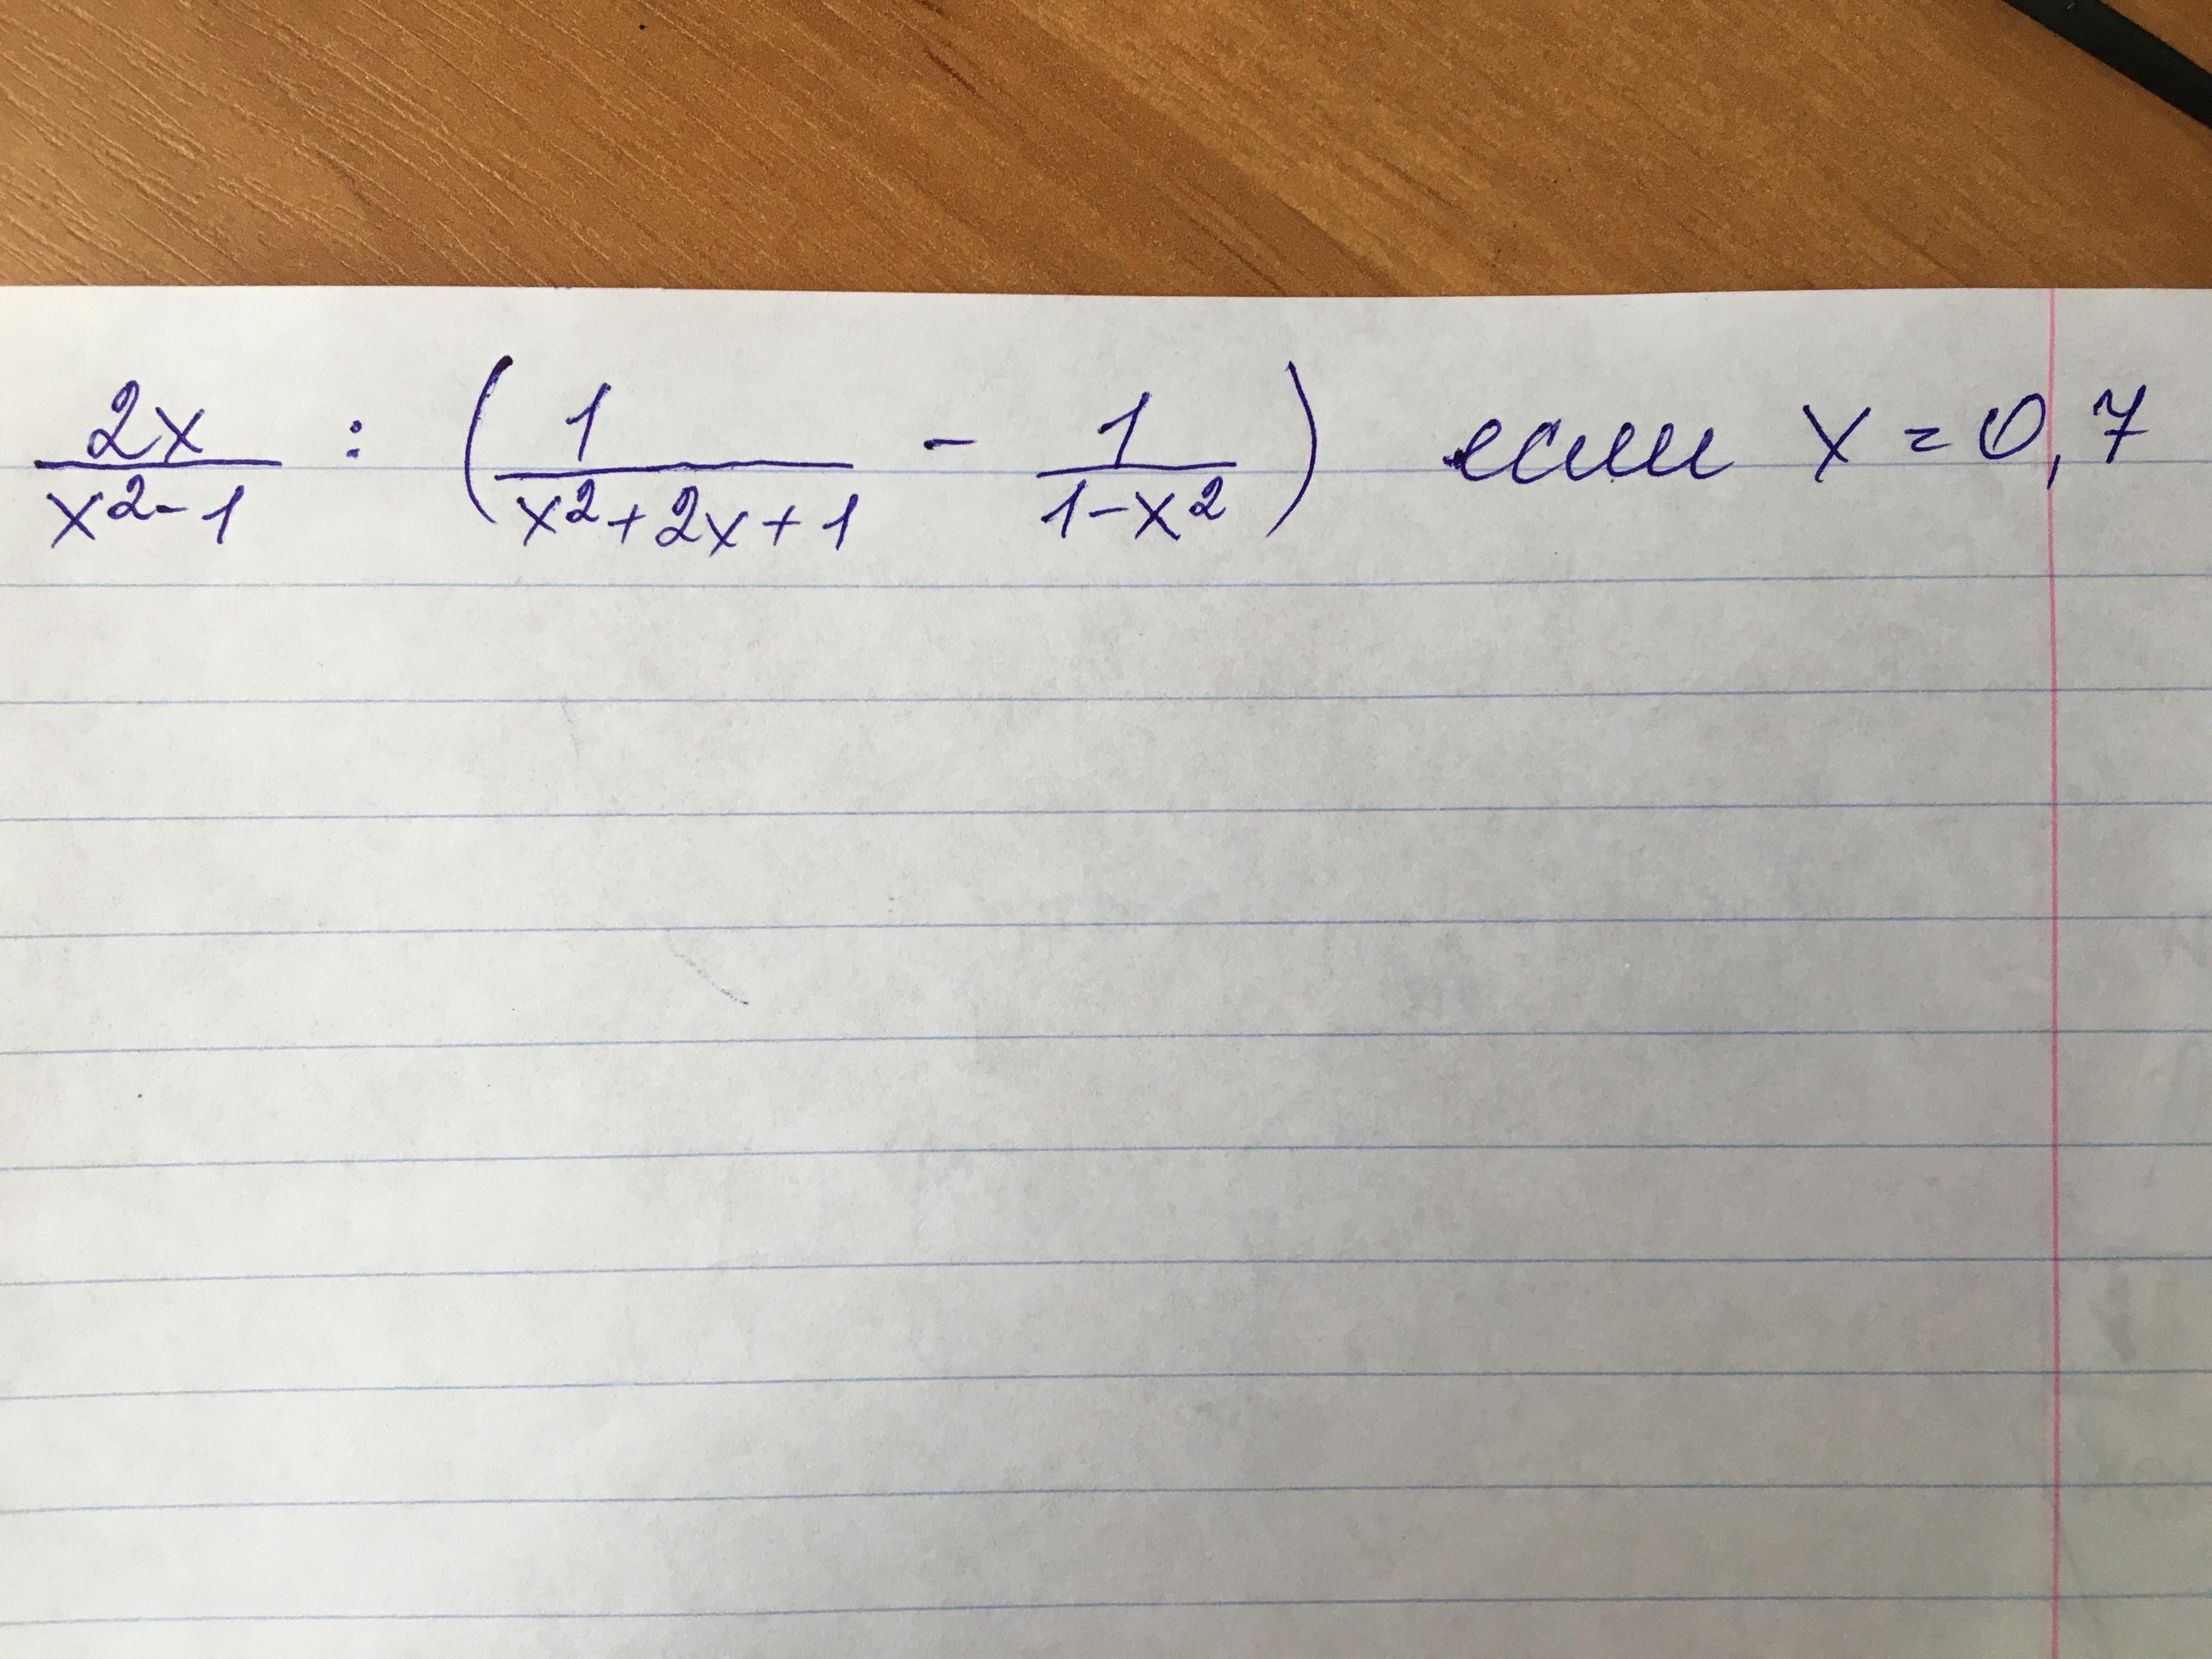 2x/(x²-1) : (1/(x²+2x+1) - 1/(1-x²)) если x=0,7